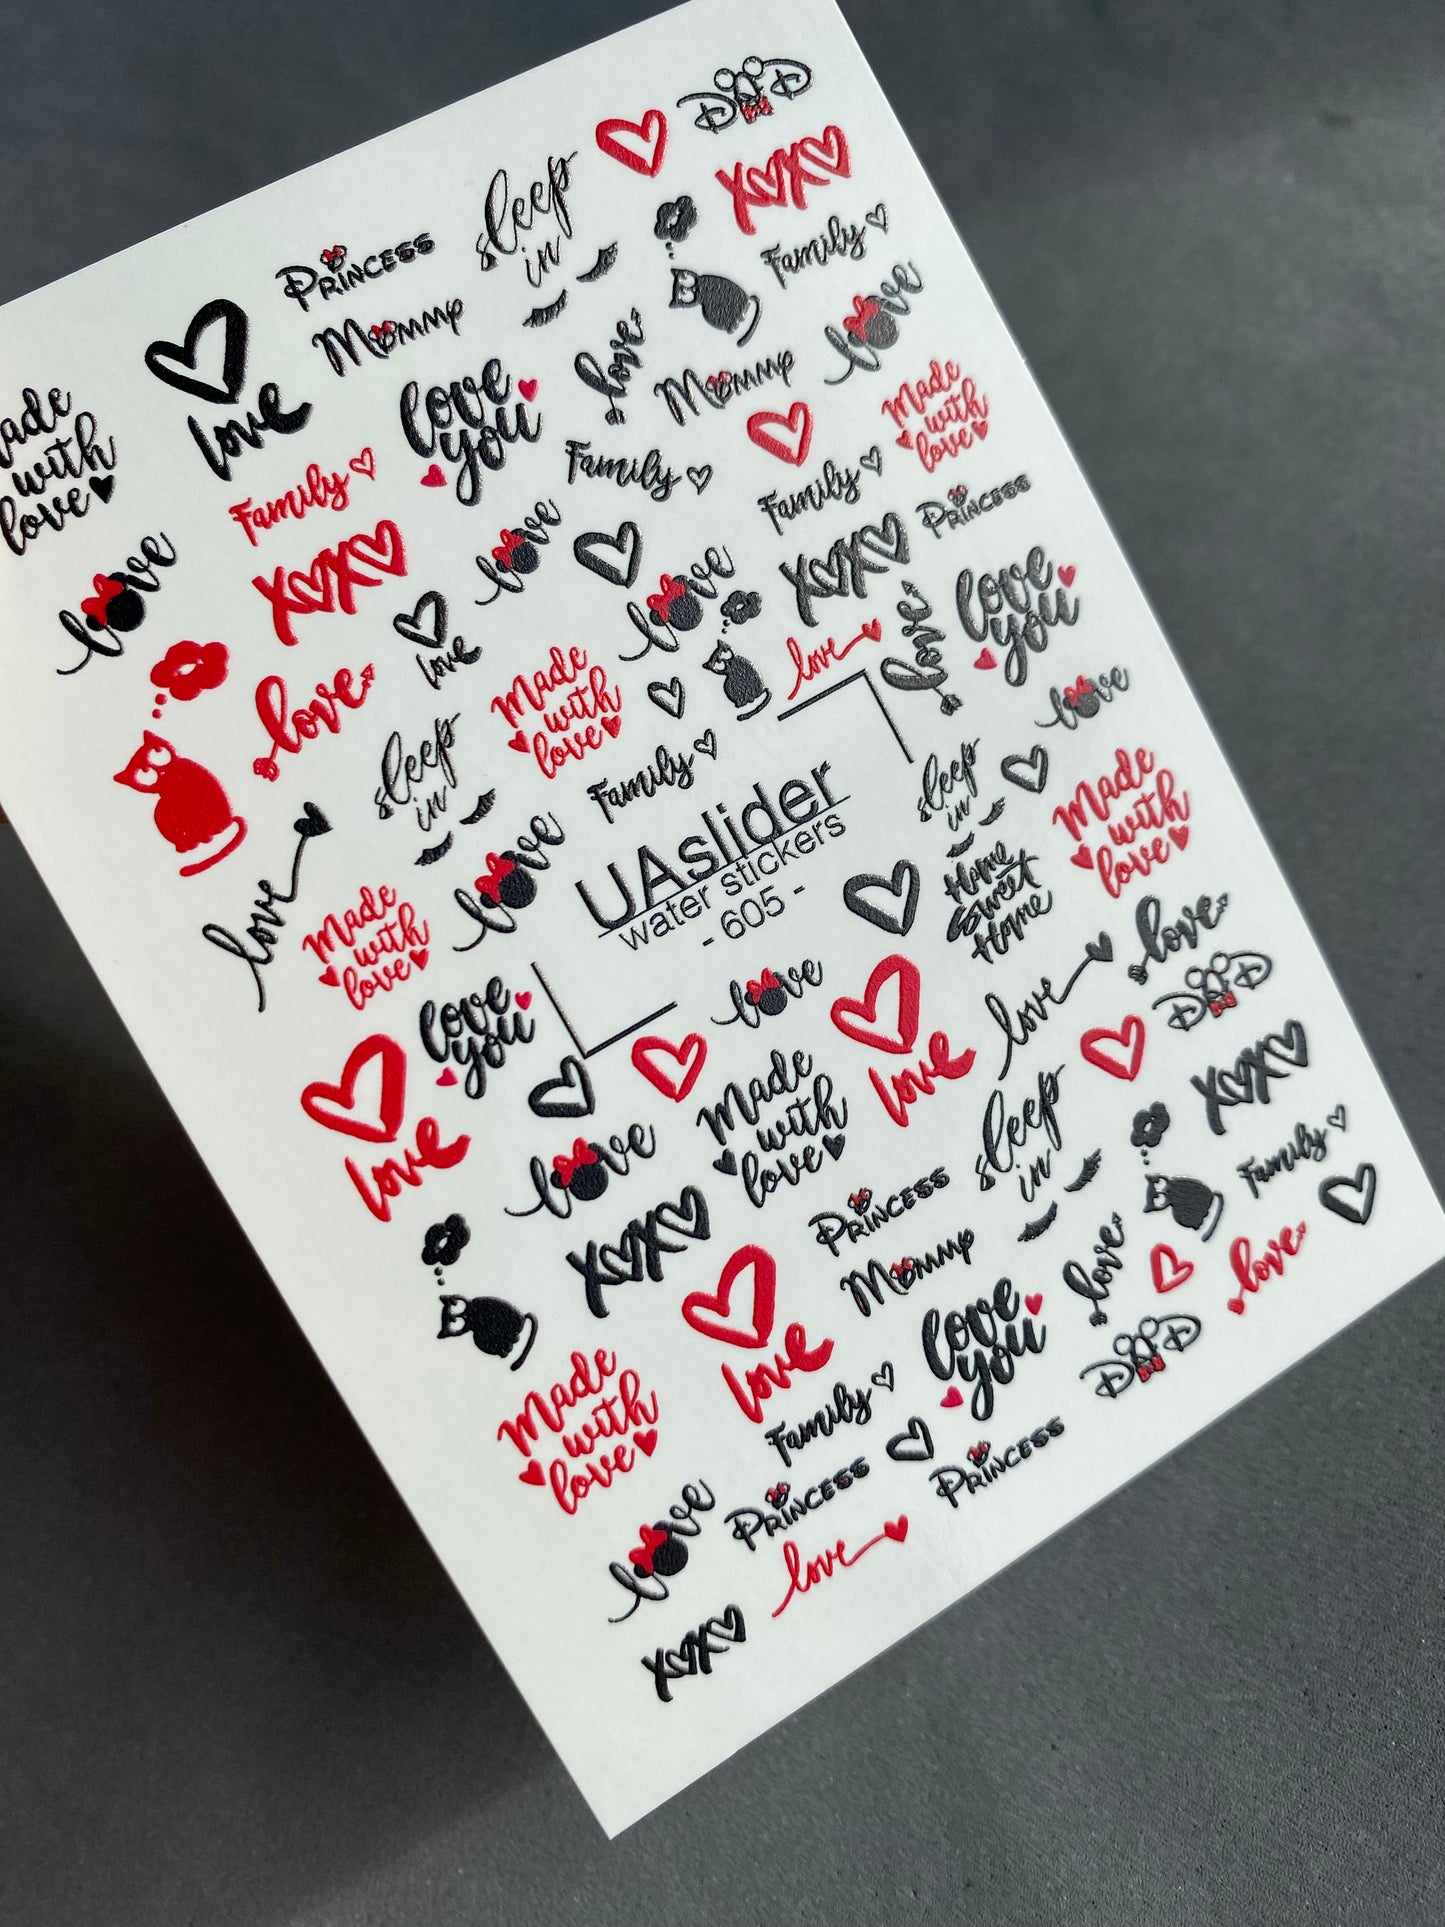 DAD
XOXO
sleep
in
Family
Princess
Mommy
love
love
love
Mommy
love
you
Made
with
love
with
love
Family
Family
Family
Princess
XOXO
love
XOXO
love
love
you
love
love
love
love
love
Made
with
love
love
sleep
in
Family
sleep
in
love
Made
with
love
UAslider
water stickers
- 605 -
Home
Sweet
Home
love
love
Made
with
love
love
you
love
love
love
DAD
love
Made
with
love
love
XOXO
sleep
in
love
XOXO
Princess
Family
Mommy
love
love
love
love
you
DAD
Made
with
love
Family
Princess
Princess
love
love
XOXO